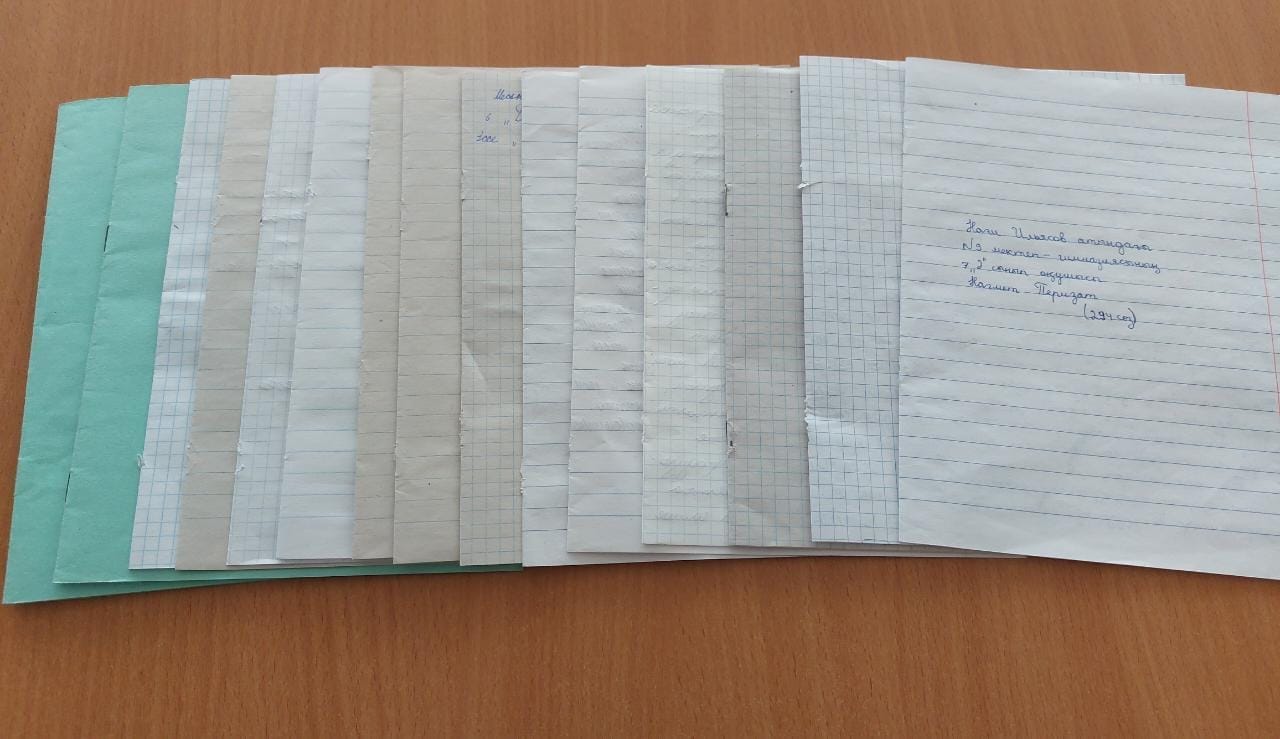 6 „
Эссе „
Нағи Ильясов атындағы
№9 мектеп-гимназиясының
7 „2" сынып оқушысы
Нағмет Перизат
(294 сөз)